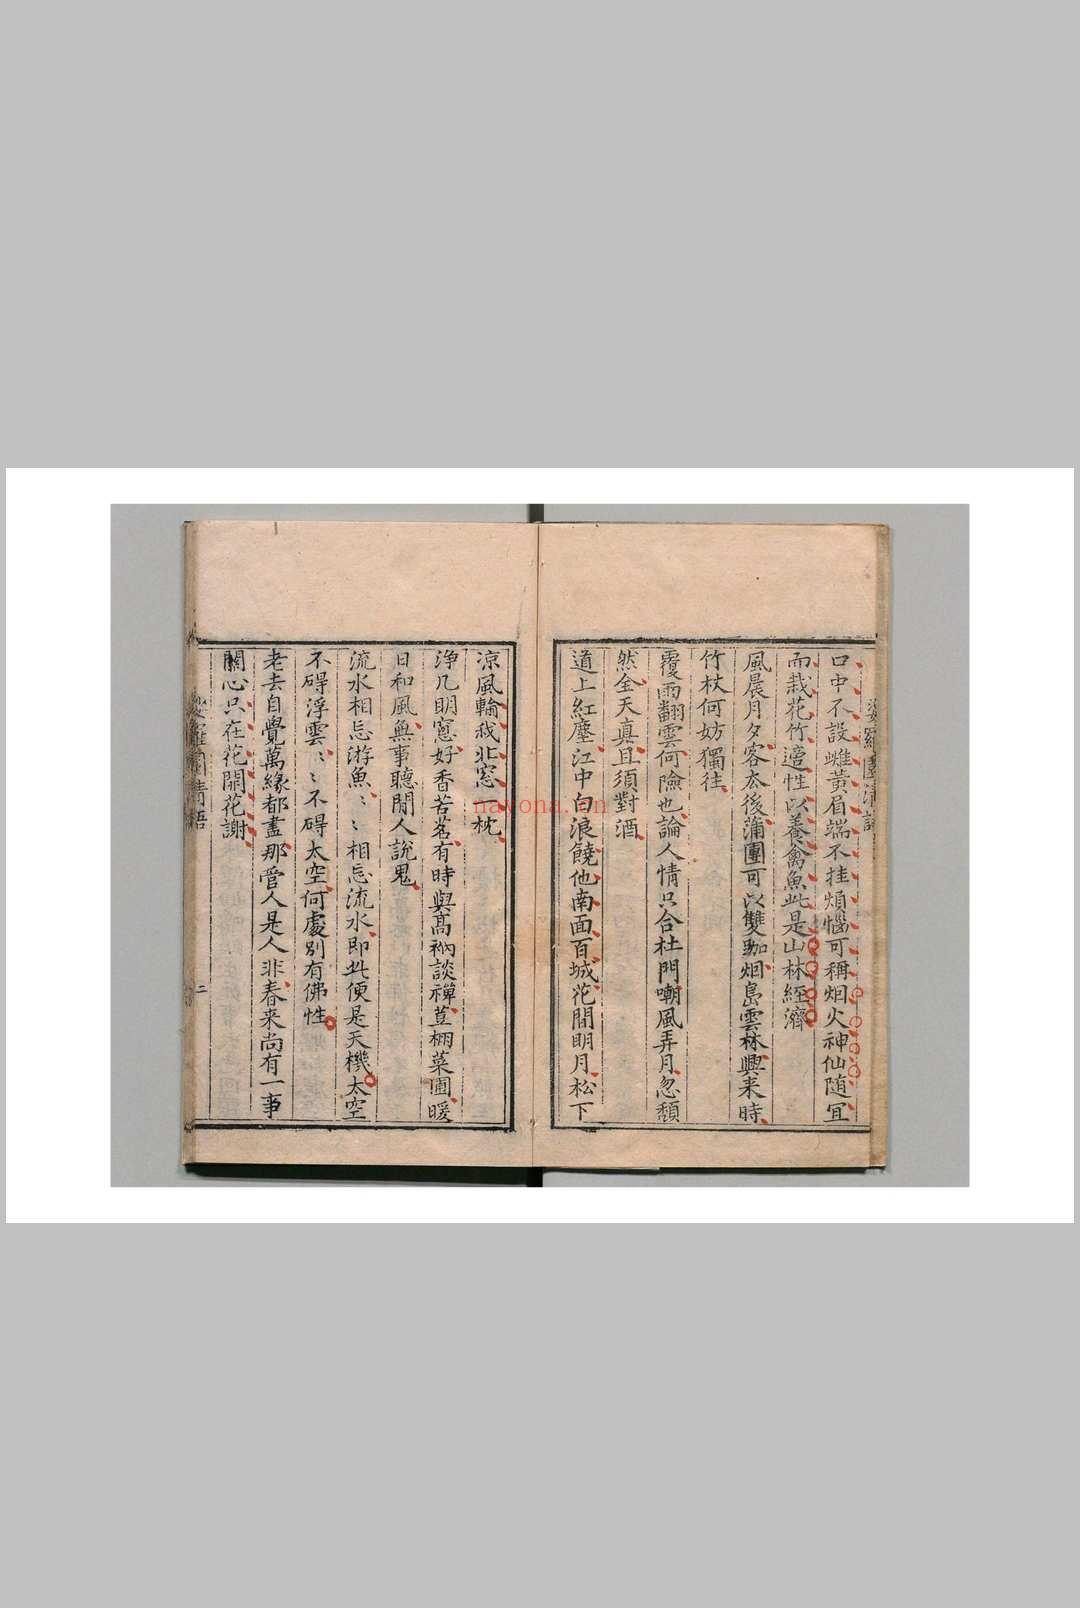 娑羅園清語
口中不設雌黃眉端不挂煩惱可稱烟火神仙随宜
而栽花竹適性以養禽魚此是山林經濟
風晨月夕客去後蒲團可以雙跏烟島雲林興来時
竹杖何妨獨往
覆雨翻雲何險也論人情只合杜門嘲風弄月忽頹
然全天真且須對酒
道上紅塵江中白浪饒他南面百城花間明月松下
凉風輸我北窓一枕
净几明窓好香苦茗有時與髙衲談禪荳棚菜圃暖
日和風無事聽閒人說鬼
流水相忘游魚〻〻相忘流水即此便是天機太空
不碍浮雲〻〻不碍太空何處別有佛性
老去自覺萬緣都盡那管人是人非春来尚有一事
關心只在花開花謝
娑羅園清語
二
nayona.cn